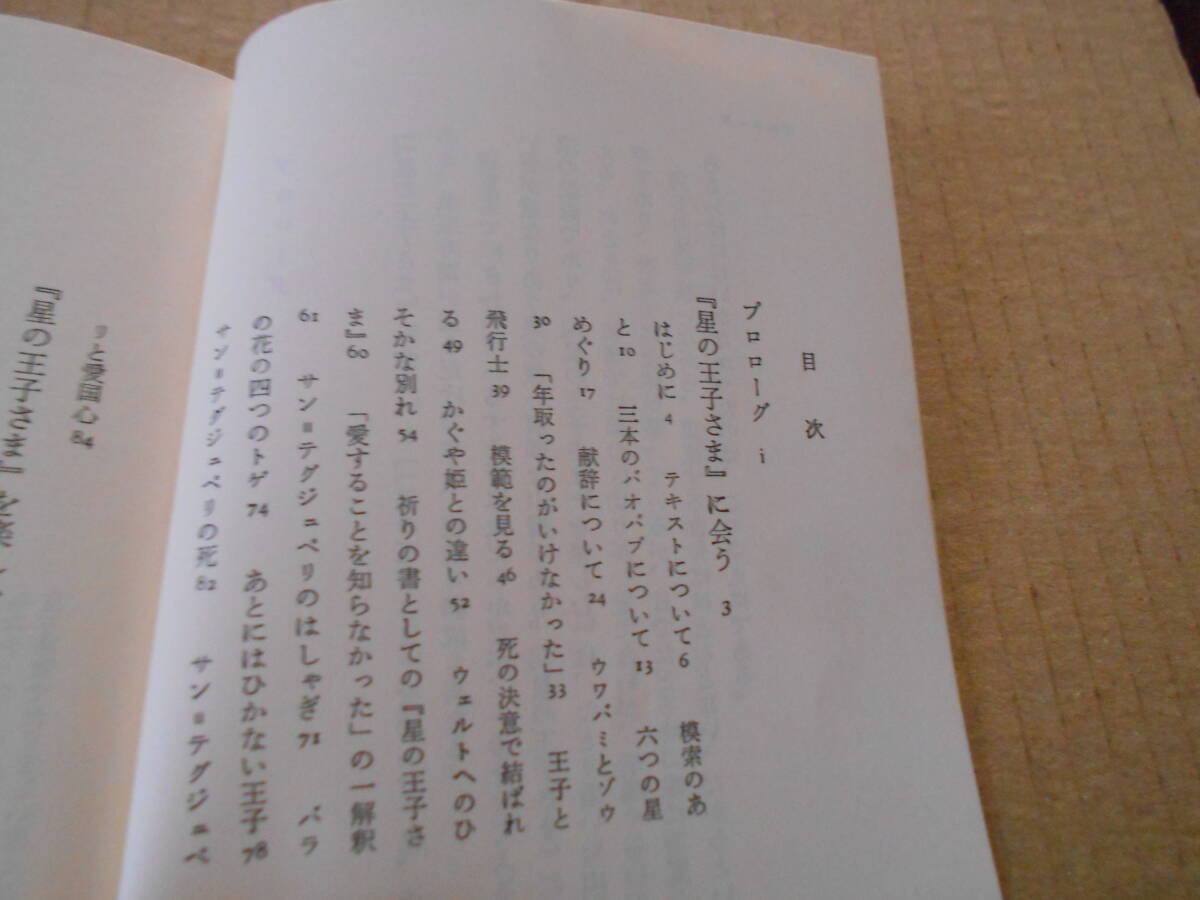 目次
プロローグ i
『星の王子さま』に会う 3
はじめに 4 テキストについて 6 模索のあ
と 10 三本のバオバブについて 13 六つの星
めぐり 17 献辞について 24 ウワバミとゾウ
30 「年取ったのがいけなかった」 33 王子と
飛行士 39 模範を見る 46 死の決意で結ばれ
る 49 かぐや姫との違い 52 ウェルトへのひ
そかな別れ 54 祈りの書としての『星の王子さ
ま』 60 「愛することを知らなかった」の一解釈
61 サン=テグジュペリのはしゃぎ 71 バラ
の花の四つのトゲ 74 あとにはひかない王子 78
サン=テグジュペリの死 82 サン=テグジュペ
リと愛国心 84
『星の王子さま』を楽し